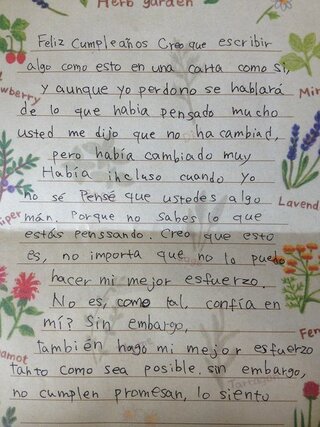 Herb garden
Feliz Cumpleaños Creo que escribir
algo como esto en una carta como Si,
y aunque yo perdono se hablará
de lo que habia pensado mucho
usted me dijo que no ha cambiad,
pero había cambiado muy
Había incluso cuando yo
no sé Pensé que ustedes algo
mán. Porque no sabes lo que
estás penssando. Creo que esto
es, no importa que no lo puedo
hacer mi mejor esfuerzo.
No es, como tal, confía en
mí? Sin embargo,
también hago mi mejor esfuerzo
tanto como sea posible. sin embargo,
no cumplen promesan, lo siento